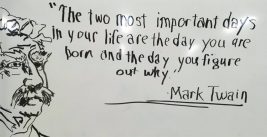 "The two most important days
In your life are the day you are
born and the day you figure
out why."
-Mark Twain